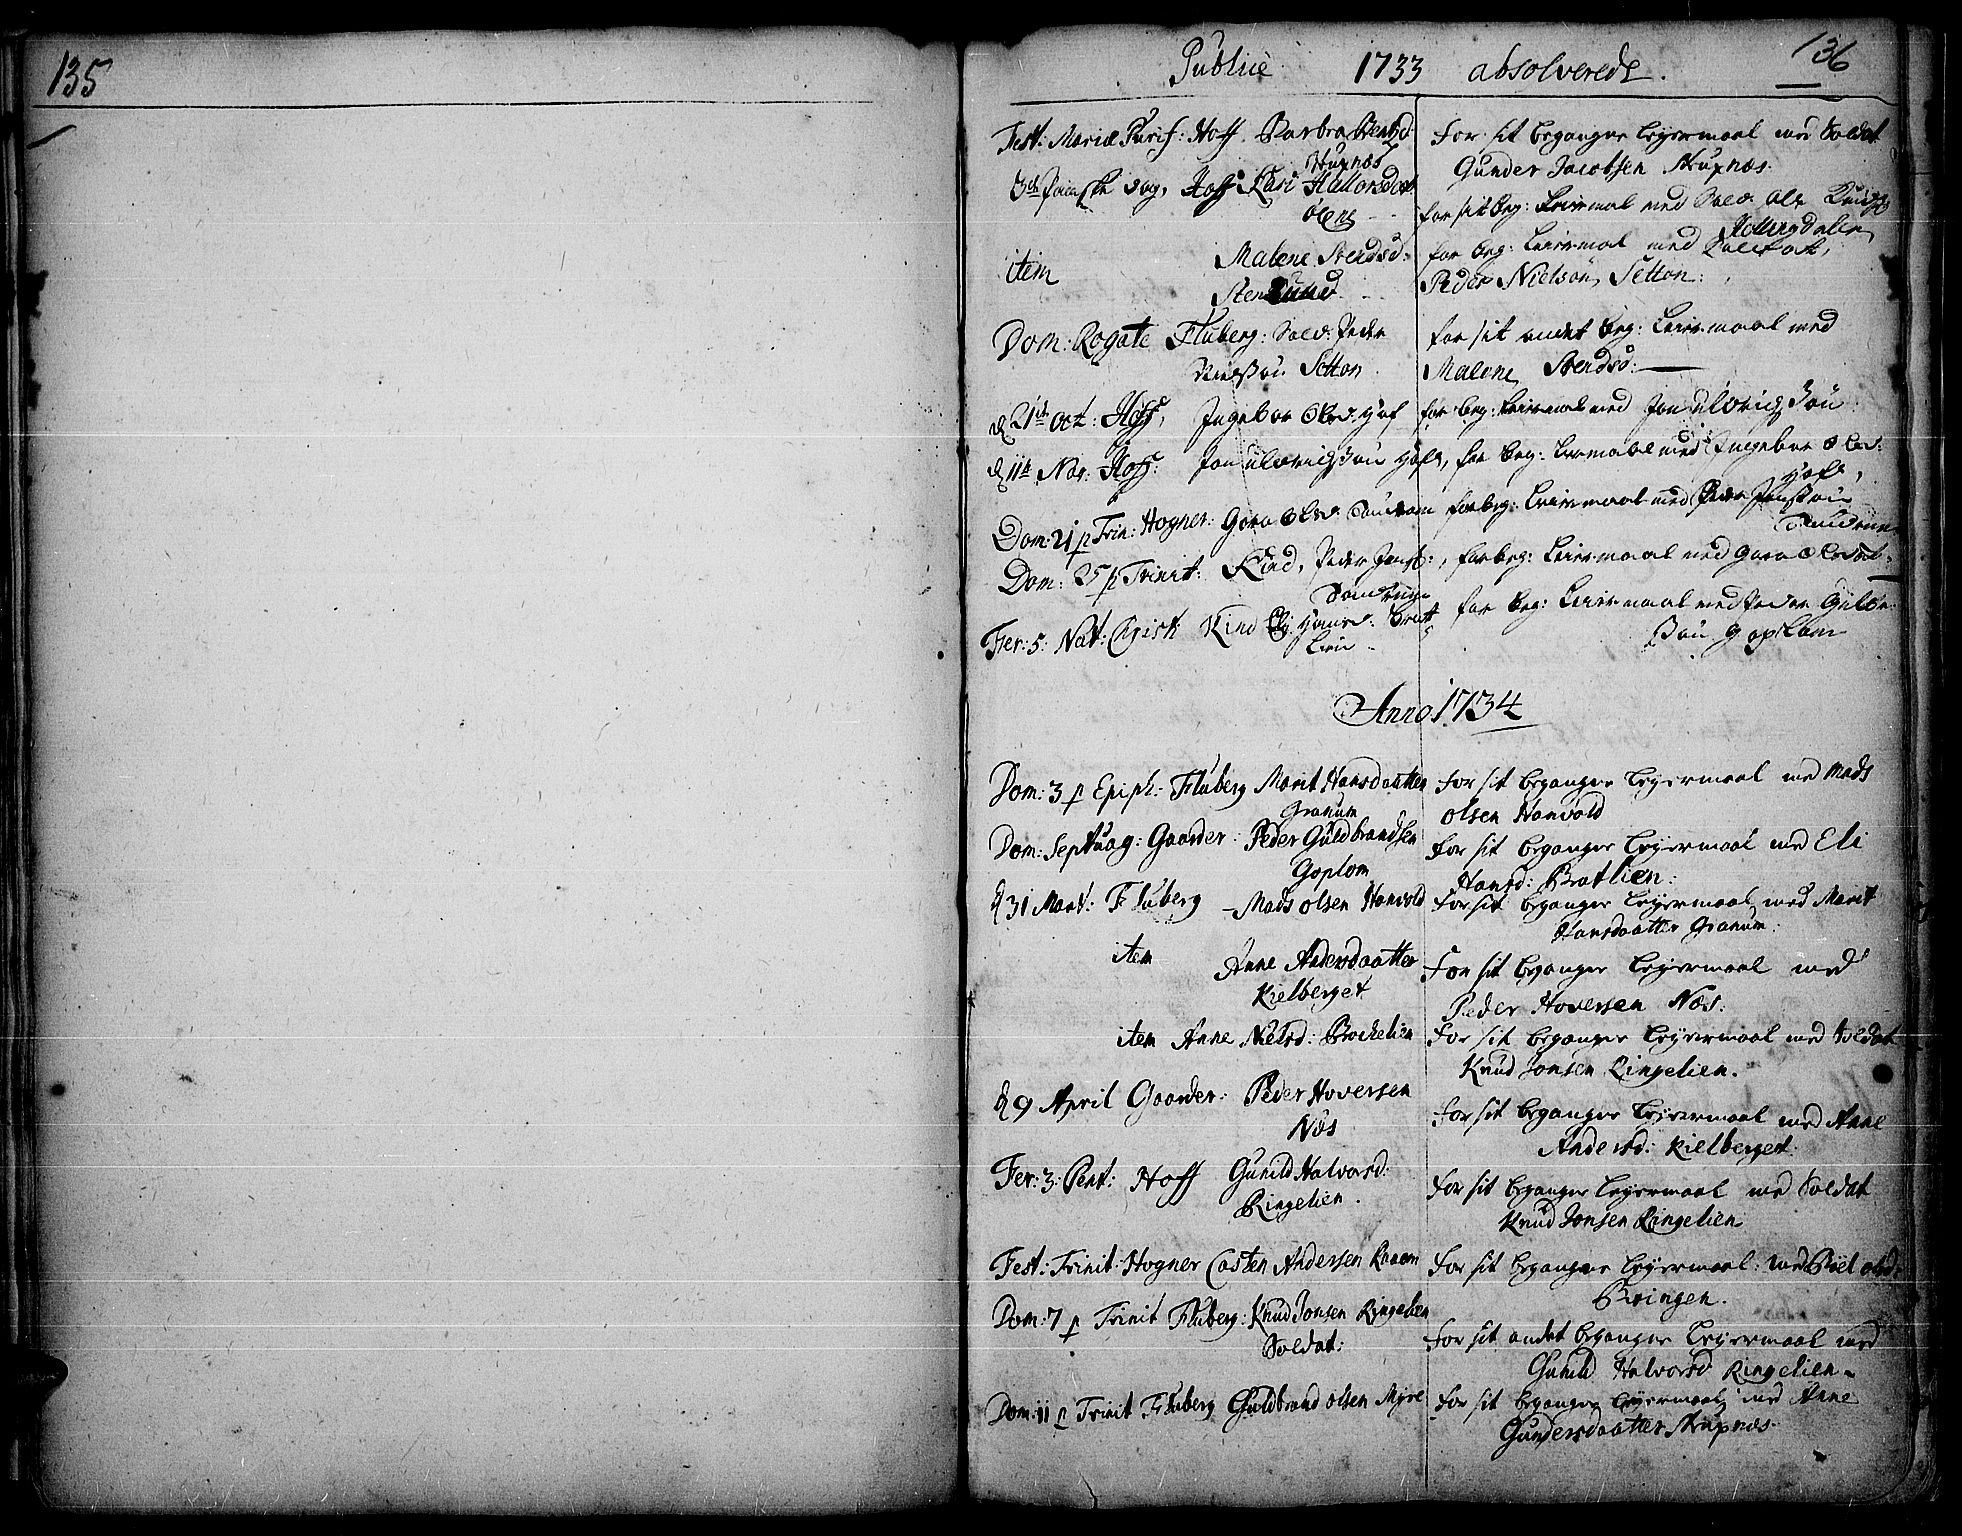 135
136
Publice 1733 absolverede.
Fest: Mariæ Purif: Hoff. Barbra For sit begangne Leyermaal med Soldat
Skupnæs Gunder Jacobsen Skupnæs.
3die dag, Hoff Kari Hallorsdat for sit beg: Leiermal med Sold. Ole
item Malene Stendsd: for beg: Leiermal med Soldat,
Peder Nielsøn Setton.
Dom: Rogate Fluberg: Sold: Peder for sit andet beg: Leiermaal med
Nielsøn Setton Malene Stendsd:
d 21de Oct: Hoff, Ingebor Olsd: Hof for beg: Leiermaal med Jon Ulvrigsøn
d 11te Nov: Hoff: Jon Ulvrigsøn Hof, for beg: Leiermaal med Ingebor Olsd:
Hof,
Dom: 21 p Trin: Hogner: Goro Olsd: for beg: Leiermaal med Peder Jensøn
Dom: 25 p Trinit: Kind, Peder Jens:, for beg: Leiermaal med Goro Olsdat:
Fer: 5: Nat: Christi Kind Eli Hansd: Brat for beg: Leiermaal med Peder Gulb:
Lien søn Goplom
Anno 1734
Dom: 3 p Epiph: Fluberg Marit Hansdaatter For sit begangne Leyermaal med Mads
Granum Olsen Honvold
Dom: Septuag: Gaarder: Peder Guldbrandsen For sit begangne Leyermaal med Eli
Goplom Hansd: Bratlien:
d 31 Mart: Fluberg - Mads Olsen Honvold For sit begangne Leyermaal med Marit
Hansdaatter Granum:
item Anne Andersdaatter For sit begangne Leyermaal med
Kielberget Peder Hoversen Næs:
item Anne Nielsd: Brochelien For sit begangne Leyermaal med Soldat
Knud Jonsen Ringelien.
d 9 April Gaarder: Peder Hoversen For sit begangne Leyermaal med Anne
Næs Andersd: Kielberget:
Fer: 3: Pent: Hoff Gunild Halvorsd: For sit begangne Leyermaal med Soldat
Ringelien. Knud Jonsen Ringelien
Fest: Trinit: Hogner Casten Andersen For sit begangne Leyermaal: med Olsd:
Dom: 7 p Trinit Fluberg: Knud Jonsen Ringelien For sit andet begangne Leyermaal med
Soldat: Gunild Halvorsd Ringelien
Dom: 11 p Trinit Fluberg Guldbrand Olsen Myre For sit begangne Leyermaal med Anne
Gundersdaatter Skupnæs.